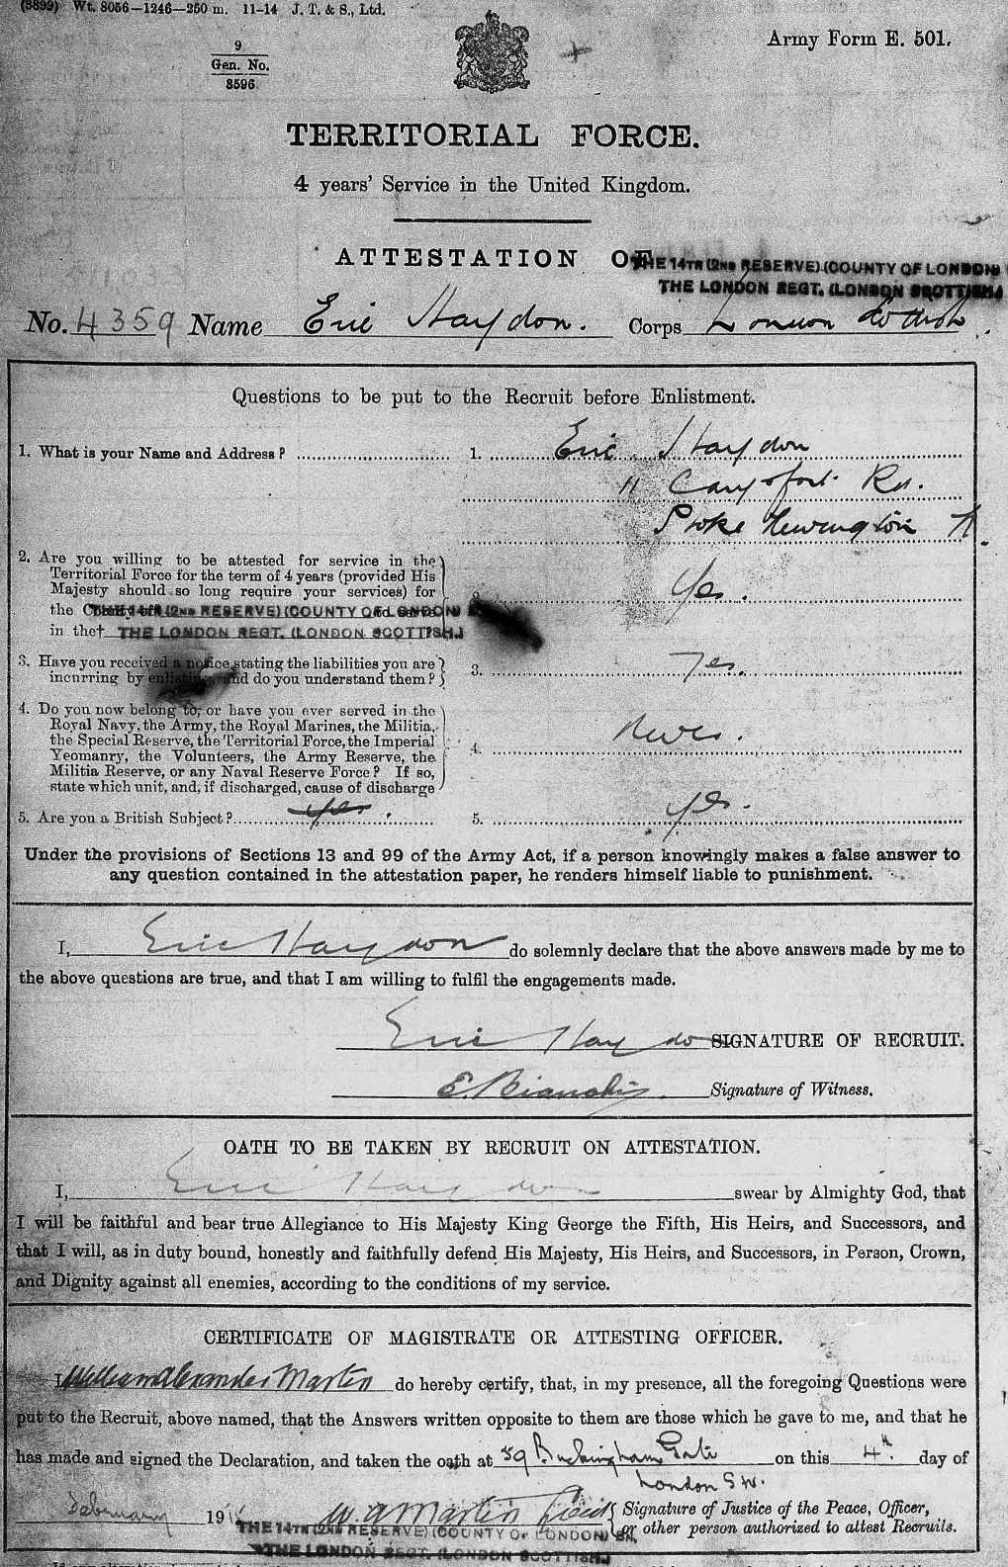 (5899) Wt. 8056—1246—250 m. 11-14 J. T. & S., Ltd.
9
Gen. No.
8596
Army Form E. 501.
TERRITORIAL FORCE.
4 years' Service in the United Kingdom.
ATTESTATION OF
THE 14TH (2ND RESERVE) (COUNTY OF LONDON)
THE LONDON REGT. (LONDON SCOTTISH)
No. 4359 Name Eric Haydon. Corps London Scottish.
Questions to be put to the Recruit before Enlistment.
1. What is your Name and Address? 1. Eric Haydon
11 Carysfort Rd.
Stoke Newington N.
2. Are you willing to be attested for service in the
Territorial Force for the term of 4 years (provided His
Majesty should so long require your services) for
the THE 14TH (2ND RESERVE) (COUNTY OF LONDON)
in the† THE LONDON REGT. (LONDON SCOTTISH)
Yes.
3. Have you received a notice stating the liabilities you are
incurring by enlisting, and do you understand them? 3. Yes.
4. Do you now belong to, or have you ever served in the
Royal Navy, the Army, the Royal Marines, the Militia,
the Special Reserve, the Territorial Force, the Imperial
Yeomanry, the Volunteers, the Army Reserve, the
Militia Reserve, or any Naval Reserve Force? If so,
state which unit, and, if discharged, cause of discharge
4. Never.
5. Are you a British Subject? yes. 5. yes.
Under the provisions of Sections 13 and 99 of the Army Act, if a person knowingly makes a false answer to
any question contained in the attestation paper, he renders himself liable to punishment.
I, Eric Haydon do solemnly declare that the above answers made by me to
the above questions are true, and that I am willing to fulfil the engagements made.
Eric Haydon SIGNATURE OF RECRUIT.
E. Bianchi Signature of Witness.
OATH TO BE TAKEN BY RECRUIT ON ATTESTATION.
I, Eric Haydon swear by Almighty God, that
I will be faithful and bear true Allegiance to His Majesty King George the Fifth, His Heirs, and Successors, and
that I will, as in duty bound, honestly and faithfully defend His Majesty, His Heirs, and Successors, in Person, Crown,
and Dignity against all enemies, according to the conditions of my service.
CERTIFICATE OF MAGISTRATE OR ATTESTING OFFICER.
I William Alexander Martin do hereby certify, that, in my presence, all the foregoing Questions were
put to the Recruit, above named, that the Answers written opposite to them are those which he gave to me, and that he
has made and signed the Declaration, and taken the oath at 59 Buckingham Gate on this 4th day of
London SW.
February 191 W. A Martin Lieut Signature of Justice of the Peace, Officer,
or other person authorized to attest Recruits.
THE 14TH (2ND RESERVE) (COUNTY OF LONDON) BN,
THE LONDON REGT. (LONDON SCOTTISH)